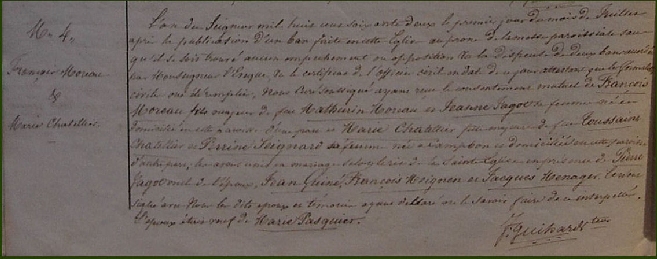 Me 4.
François Moreau
&
Marie Chatellier
L'an du Seigneur mil huit cent soixante deux le premier jour du mois de Juillet
après la publication d'un ban faite en cette Eglise au prone de la messe paroissiale sans
qu'il se soit trouvé aucun empêchement ou opposition Vu la dispense de deux bans accordée
par Monseigneur l'Evêque, Vu le certificat de l'officier civil en date de ce jour attestant que les formalités
civiles ont été remplies, Nous Soussigné ayant reçu le consentement mutuel de François
Moreau fils majeur de feu Mathurin Moreau et Jeanne Jagot sa femme né et
domicilié en cette paroisse d'une part et Marie Chatellier fille majeure de feu Toussaint
Chatellier et Perrine Seignard sa femme née à Campbon et domiciliée en cette paroisse
d'autre part, les avons unis en mariage selon le rit de la Sainte Eglise en présence de Pierre
Jagot oncle de l'époux, Jean Guiné, François Moignon et Jacques Menager témoins
Nous les dits époux et témoins ayant déclaré ne le savoir faire de ce interpellé
L'époux était veuf de Marie Pasquier.
F. Guihard